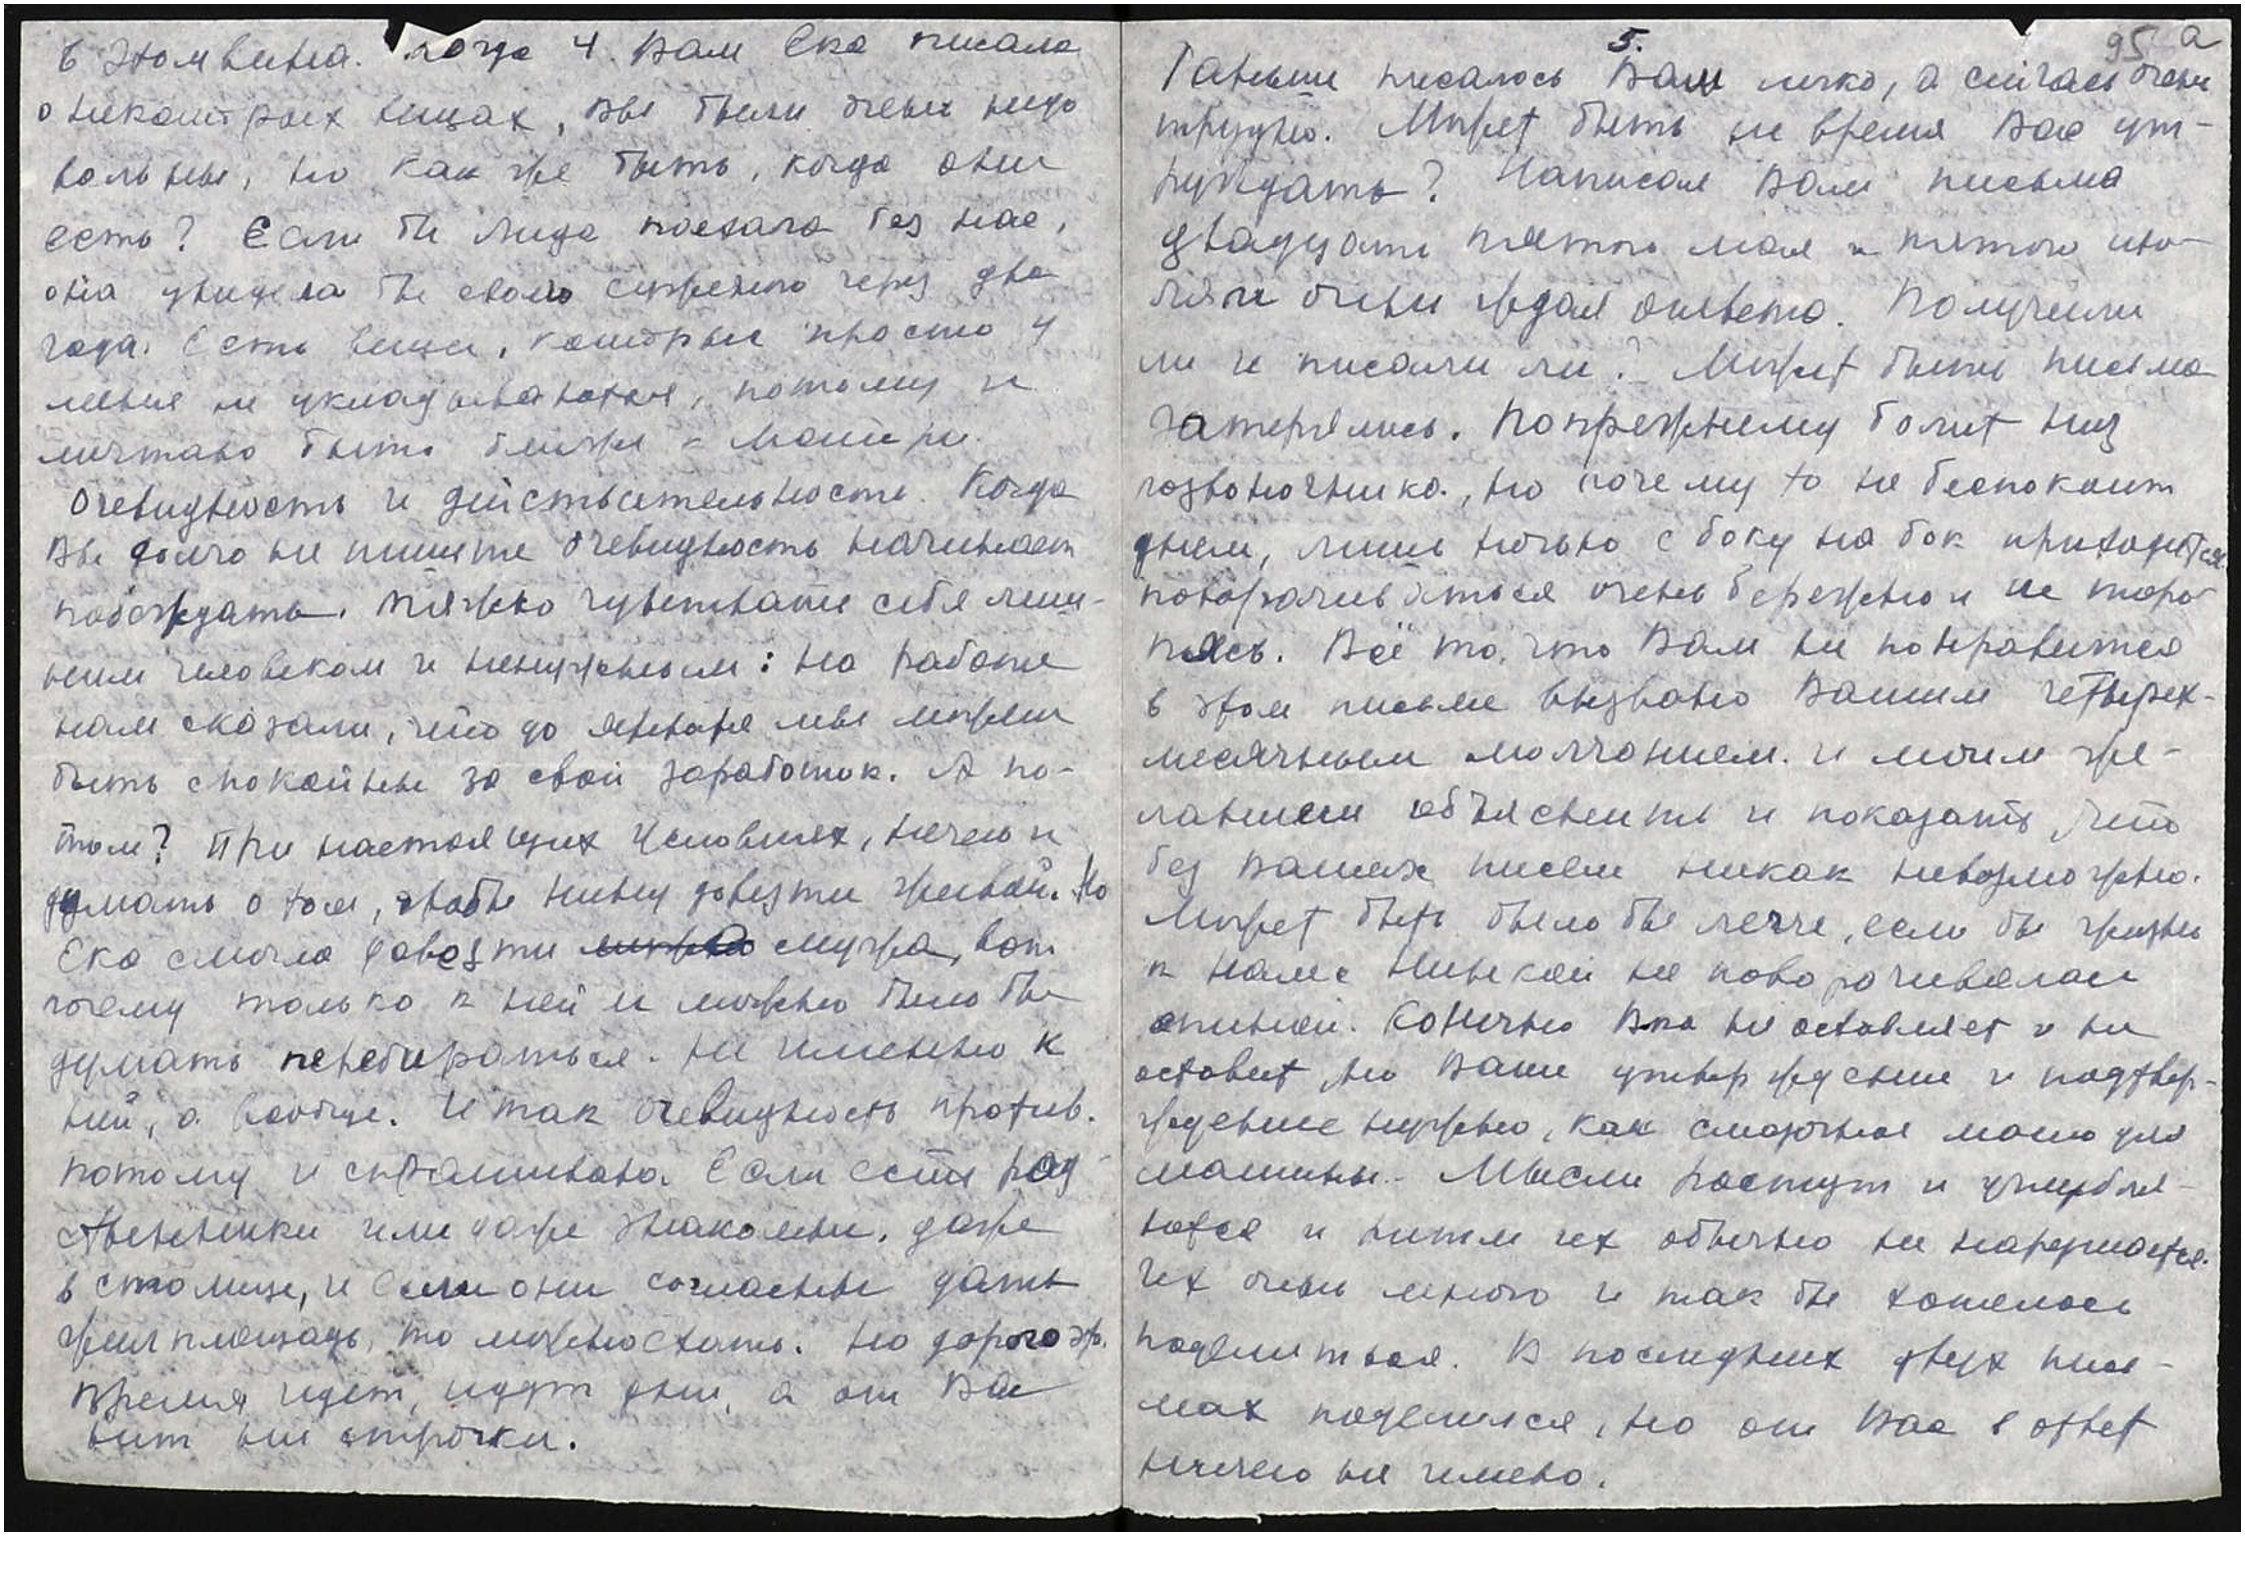 в этом вина. Когда ч. Вам Ека писала
о некоторых вещах, Вы были очень недо
вольны, но как же быть, когда они
есть? Если бы Лида поехала без нас,
она увидела бы своего суженого через два
года. Есть вещи, которые просто у
меня не укладываются, потому и
мечтаю быть ближе к Матери.
Очевидность и действительность. Когда
Вы долго не пишете очевидность начинает
побеждать. Тяжко чувствовать себя лиш-
ним человеком и ненужным: на работе
нам сказали, что до января мы можем
быть спокойны за свой заработок. А по-
том? При настоящих условиях, нечего и
думать о том, чтобы Нину довезти живой. Но
Ека смогла довезти мужа, вот
почему только к ней и можно было бы
думать перебираться. Не именно к
ней, а вообще. И так очевидность против.
Потому и спрашиваю. Если есть род-
ственники или даже знакомые, даже
в столице, и если они согласны дать
жилплощадь, то можно ехать. Но дорого эт.
Время идет, идут дни, а от Вас
нит ни строчки.
5.
95 а
Раньше писалось Вам легко, а сейчас очень
трудно. Может быть не время Вас ут-
руждать? Написал Вам письма
двадцать пятого мая и пятого ию-
ля и очень ждал ответа. Получили
ли и писали ли? Может быть письма
затерялись. Попрежнему болит низ
позвоночника, но почему то не беспокоит
днем, лишь ночью с боку на бок приходится
поворачиваться очень бережно и не торо-
пясь. Всё то, что Вам не понравится
в этом письме вызвано Вашим четырех-
месячным молчанием. и моим же-
ланием объяснить и показать, что
без Ваших писем никак невозможно.
Может быть было бы легче, если бы жизнь
к нам с Нинкой не поворачивалась
спиной. Конечно Вл. не оставляет и не
оставит, но Ваше утверждение и подтвер-
ждение нужно, как смазочное масло для
машины. Мысли растут и углубля-
ются и ритм их обычно не нарушается.
Их очень много и так бы хотелось
поделиться. В последних двух пись-
мах поделился, но от Вас в ответ
ничего не имею.